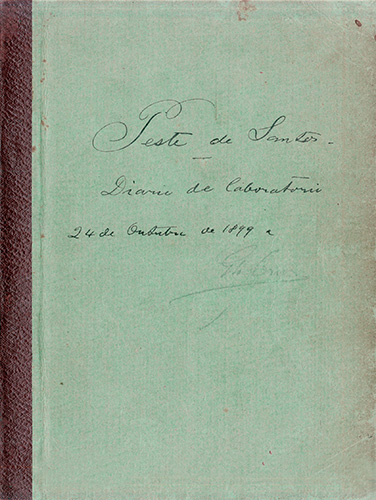 Peste de Santos.
Diario de laboratorio
24 de Outubro de 1899 a